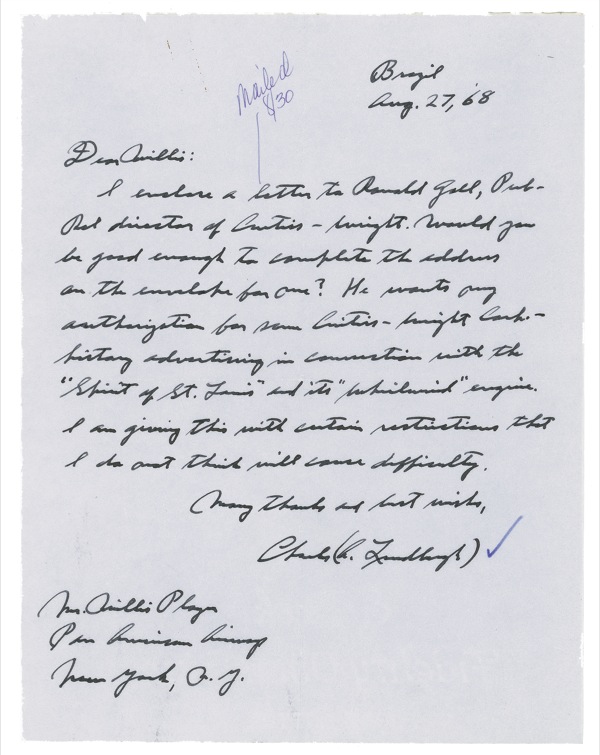 Brazil
Aug. 27, '68
Mailed
8/30
Dear Willis:
I enclose a letter to Ronald Gall, Pub-
Rel director of Curtiss-Wright. Would you
be good enough to complete the address
on the envelope for me? He wants my
authorization for some Curtiss-Wright
history advertising in connection with the
"Spirit of St. Louis" and its "Whirlwind" engine.
I am giving this with certain restrictions that
I do not think will cause difficulty.
Many thanks and best wishes,
Charles (A. Lindbergh)
Mr. Willis Player
Pan American Airways
New York, N.Y.